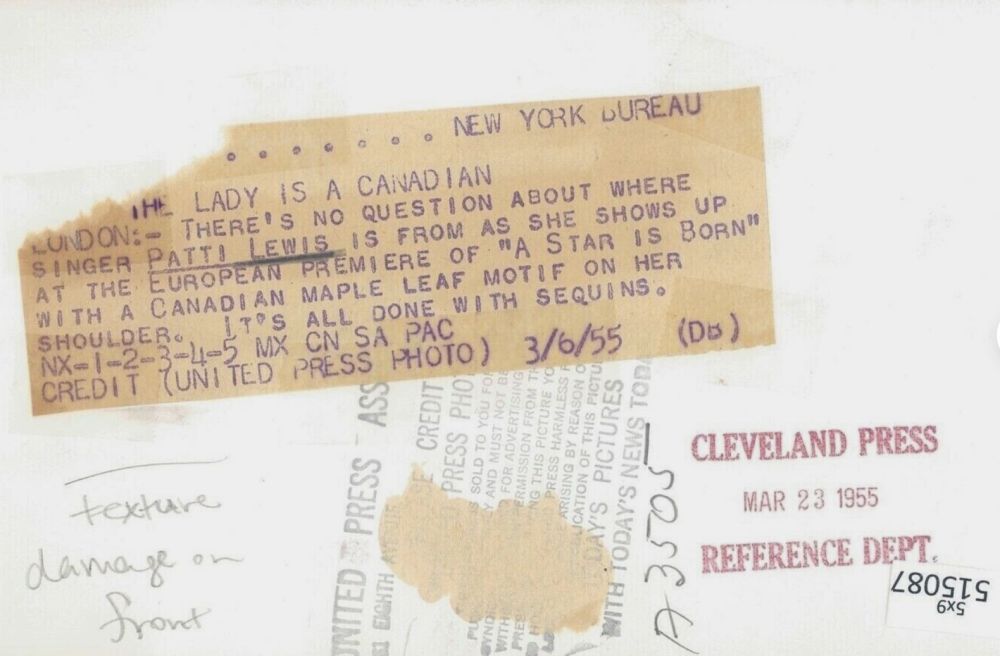 . . . . . . . NEW YORK BUREAU
THE LADY IS A CANADIAN
LONDON:- THERE'S NO QUESTION ABOUT WHERE
SINGER PATTI LEWIS IS FROM AS SHE SHOWS UP
AT THE EUROPEAN PREMIERE OF "A STAR IS BORN"
WITH A CANADIAN MAPLE LEAF MOTIF ON HER
SHOULDER. IT'S ALL DONE WITH SEQUINS.
NX-1-2-3-4-5 MX CN SA PAC
CREDIT (UNITED PRESS PHOTO) 3/6/55 (DB)
texture
damage on
front
UNITED PRESS ASS
EIGHTH
CREDIT
PRESS PHO
SOLD TO YOU FO
AND MUST NOT B
FOR ADVERTISING
ERMISSION FROM TH
NG THIS PICTURE YO
PRESS HARMLESS F
ARISING BY REASON O
ICATION OF THIS PICTU
DAY'S PICTURES
WITH TODAY'S NEWS TODA
A35505
CLEVELAND PRESS
MAR 23 1955
REFERENCE DEPT.
5x9
515087